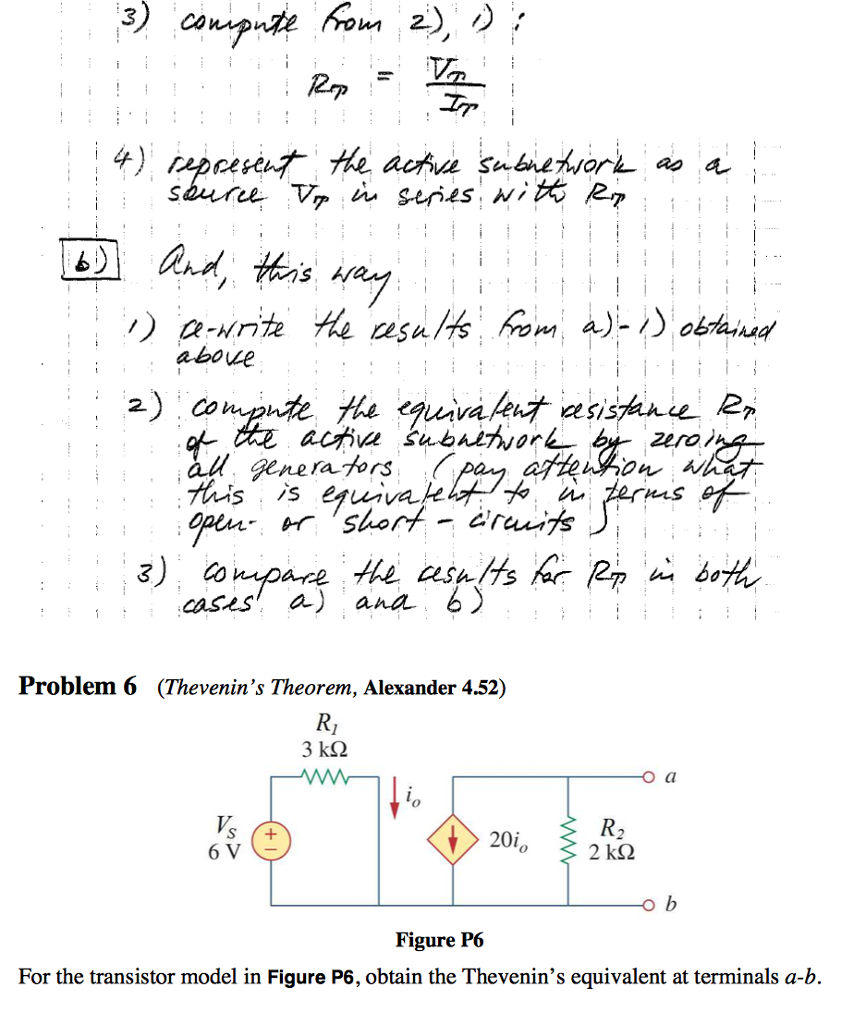 3) compute from 2), 1) :
R_T = V_T / I_T
4) represent the active subnetwork as a
source V_T in series with R_T
b) And, this way
1) re-write the results from a)-1) obtained
above
2) compute the equivalent resistance R_T
of the active subnetwork by zeroing
all generators (pay attention what
this is equivalent to in terms of
open- or short-circuits)
3) compare the results for R_T in both
cases a) and b)
Problem 6 (Thevenin's Theorem, Alexander 4.52)
R1
3 kΩ
io
a
VS
6 V
+
−
20io
R2
2 kΩ
b
Figure P6
For the transistor model in Figure P6, obtain the Thevenin's equivalent at terminals a-b.